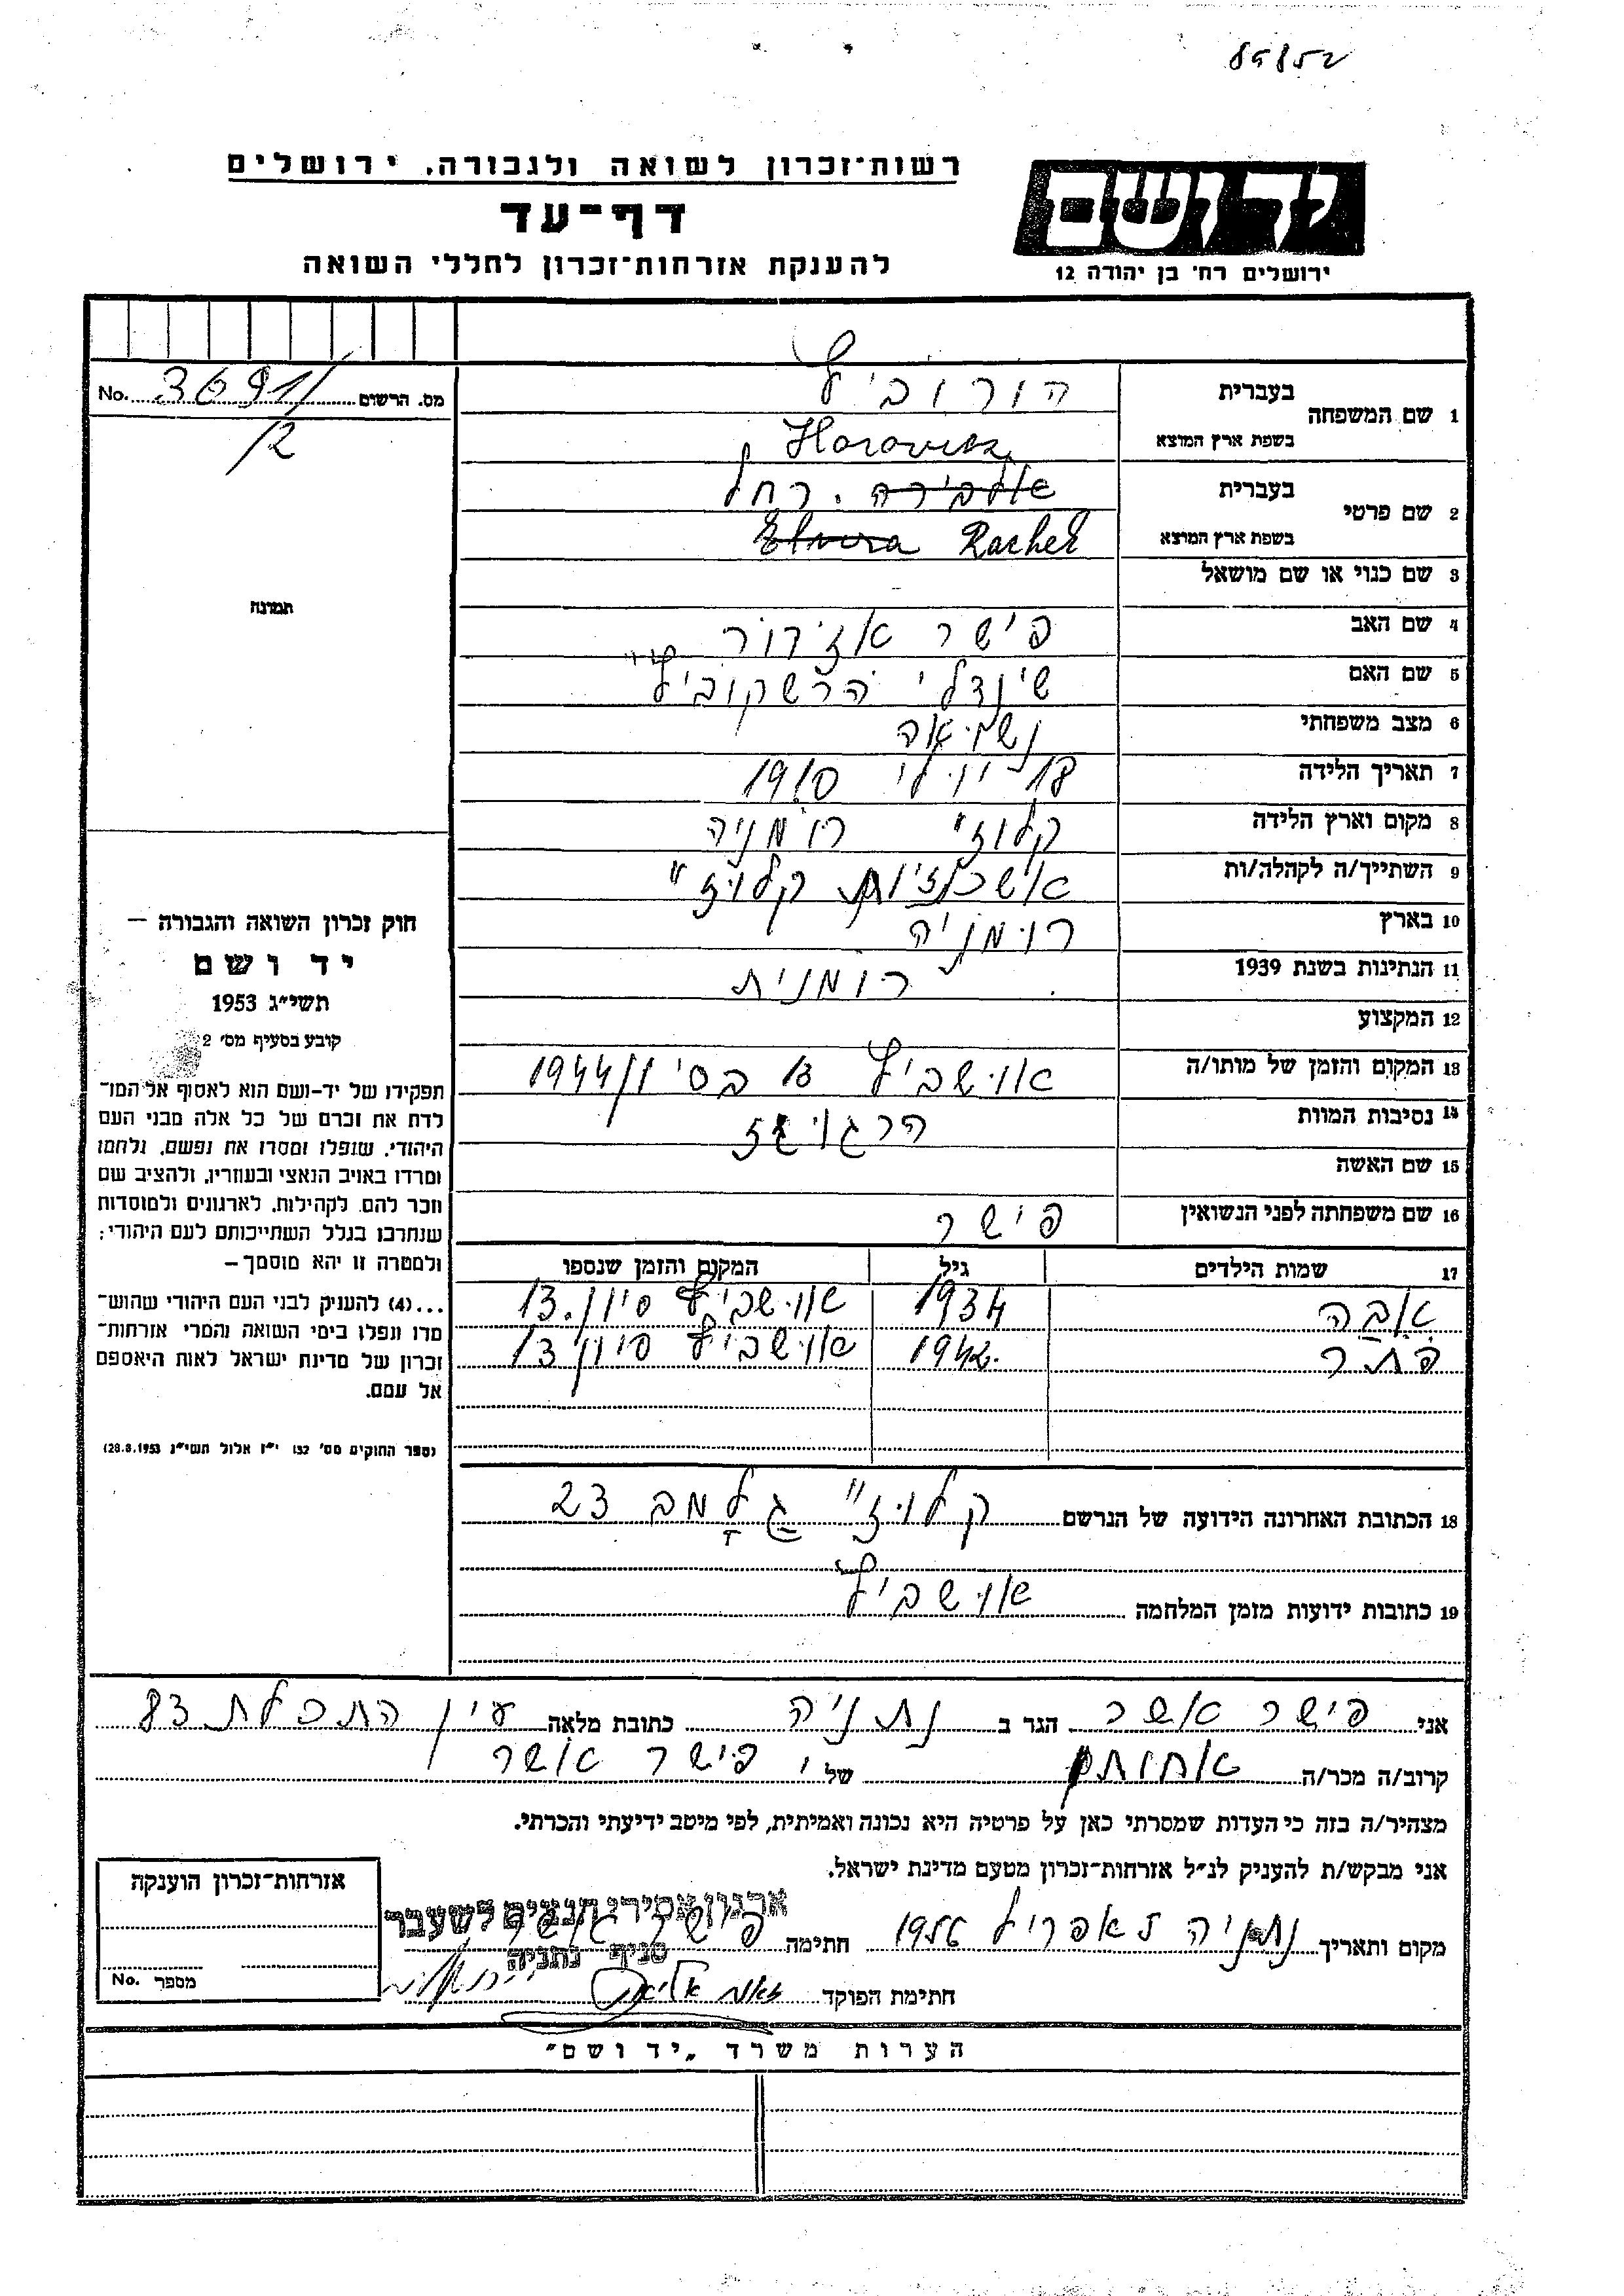 85852
רשות־זכרון לשואה ולגבורה, ירושלים
דף־עד
להענקת אזרחות־זכרון לחללי השואה
יד ושם
ירושלים רח׳ בן יהודה 12
מס. הרשום 3691/ No.
12
תמונה
חוק זכרון השואה והגבורה —
יד ושם
תשי״ג 1953
קובע בסעיף מס׳ 2
תפקידו של יד־ושם הוא לאסוף אל המו־
לדת את זכרם של כל אלה מבני העם
היהודי, שנפלו ומסרו את נפשם, נלחמו
ומרדו באויב הנאצי ובעוזריו, ולהציב שם
וזכר להם, לקהילות, לארגונים ולמוסדות
שנחרבו בגלל השתייכותם לעם היהודי;
ולמטרה זו יהא מוסמך —
...(4) להעניק לבני העם היהודי שהוש־
מדו ונפלו בימי השואה והמרי אזרחות־
זכרון של מדינת ישראל לאות היאספם
אל עמם.
(ספר החוקים מס׳ 132 י״ז אלול תשי״ג 28.8.1953)
1 שם המשפחה בעברית הורוביץ
בשפת ארץ המוצא Horovicz
2 שם פרטי בעברית אלבירה. רחל
בשפת ארץ המוצא Elvira Rachel
3 שם כנוי או שם מושאל
4 שם האב פישר אזידור
5 שם האם שינדלי הרשקוביץ
6 מצב משפחתי נשואה
7 תאריך הלידה 18 יולי 1910
8 מקום וארץ הלידה קלוז׳ רומניה
9 השתייך/ה לקהלה/ות אשכנזית קלוז"
10 בארץ רומניה
11 הנתינות בשנת 1939 רומנית
12 המקצוע
13 המקום והזמן של מותו/ה אושביץ 13 בסיון 1944
14 נסיבות המוות הרג
15 שם האשה
16 שם משפחתה לפני הנשואין פישר
17 שמות הילדים גיל המקום והזמן שנספו
אבה 1934 אושביץ סיון. 13
פתר 1942 אושביץ סיון 13
18 הכתובת האחרונה הידועה של הנרשם קלוז" 23
19 כתובות ידועות מזמן המלחמה אושביץ
אני פישר אשר הגר ב נתניה כתובת מלאה עין התכלת 83
קרוב/ה מכר/ה של י פישר אשר
מצהיר/ה בזה כי העדות שמסרתי כאן על פרטיה היא נכונה ואמיתית, לפי מיטב ידיעתי והכרתי.
אני מבקש/ת להעניק לנ״ל אזרחות־זכרון מטעם מדינת ישראל.
מקום ותאריך נתניה 7 אפריל 1956 חתימה פישר אשר
ארגון אסירי הנאצים לשעבר
סניף נתניה
חתימת הפוקד
אזרחות־זכרון הוענקה
מספר No.
הערות משרד „יד ושם״